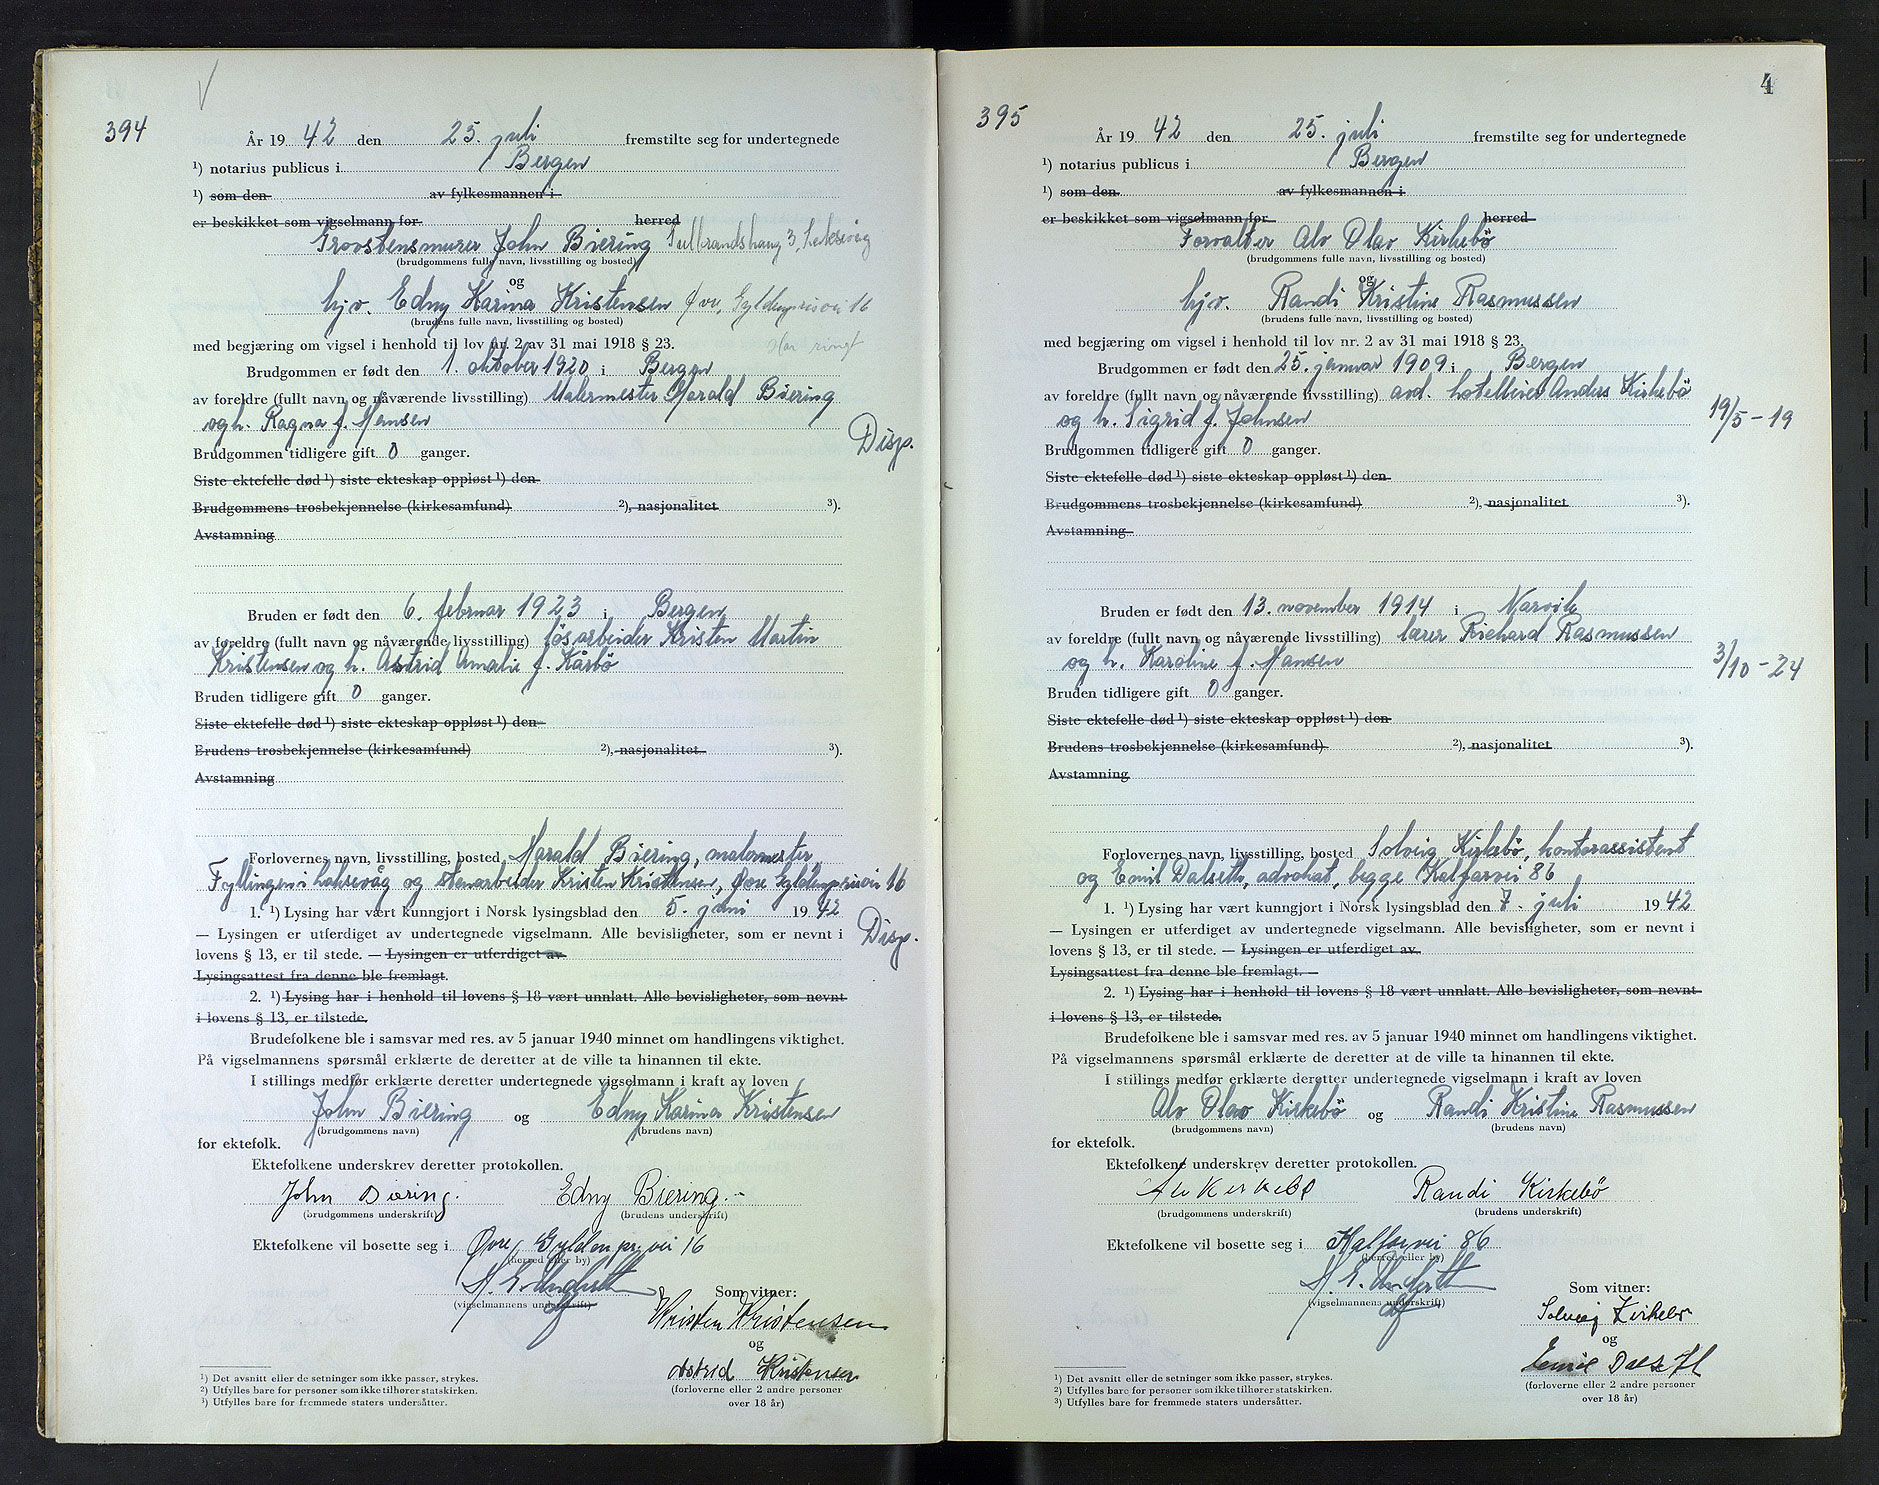 394
År 19 42 den 25. juli fremstilte seg for undertegnede
¹) notarius publicus i Bergen
¹) som den av fylkesmannen i
er beskikket som vigselmann for herred
John Biering 3,
(brudgommens fulle navn, livsstilling og bosted)
og
hjv. Edny Karina Kristensen Øvre 16
(brudens fulle navn, livsstilling og bosted)
med begjæring om vigsel i henhold til lov nr. 2 av 31 mai 1918 § 23.
Brudgommen er født den 1. oktober 1920 i Bergen
av foreldre (fullt navn og nåværende livsstilling) Malermester Harald Biering
og h. Ragna f. Hansen
Disp.
Brudgommen tidligere gift 0 ganger.
Siste ektefelle død ¹) siste ekteskap oppløst ¹) den
Brudgommens trosbekjennelse (kirkesamfund) ²), nasjonalitet ³).
Avstamning
Bruden er født den 6. februar 1923 i Bergen
av foreldre (fullt navn og nåværende livsstilling) løsarbeider Kristen Martin
Kristensen og h. Astrid Amalie f. Kårbø
Bruden tidligere gift 0 ganger.
Siste ektefelle død ¹) siste ekteskap oppløst ¹) den
Brudens trosbekjennelse (kirkesamfund) ²), nasjonalitet ³).
Avstamning
Forlovernes navn, livsstilling, bosted Harald Biering, malermester,
Fyllingen i Laksevåg og stenarbeider Kristen Kristensen, Øvre Gyldenprisvei 16
1. ¹) Lysing har vært kunngjort i Norsk lysingsblad den 5. juni 19 42
— Lysingen er utferdiget av undertegnede vigselmann. Alle bevisligheter, som er nevnt i
Disp.
lovens § 13, er til stede. — Lysingen er utferdiget av
Lysingsattest fra denne ble fremlagt.
2. ¹) Lysing har i henhold til lovens § 18 vært unnlatt. Alle bevisligheter, som nevnt
i lovens § 13, er tilstede.
Brudefolkene ble i samsvar med res. av 5 januar 1940 minnet om handlingens viktighet.
På vigselmannens spørsmål erklærte de deretter at de ville ta hinannen til ekte.
I stillings medfør erklærte deretter undertegnede vigselmann i kraft av loven
John Biering og Edny Karina Kristensen
(brudgommens navn) (brudens navn)
for ektefolk.
Ektefolkene underskrev deretter protokollen.
John Biering. Edny Biering.
(brudgommens underskrift) (brudens underskrift)
Ektefolkene vil bosette seg i Øvre Gyldenpr. vei 16
(herred eller by)
(vigselmannens underskrift)
Som vitner:
Kristen Kristensen
og
Astrid Kristensen
(forloverne eller 2 andre personer
over 18 år)
¹) Det avsnitt eller de setninger som ikke passer, strykes.
²) Utfylles bare for personer som ikke tilhører statskirken.
³) Utfylles bare for fremmede staters undersåtter.
4
395
År 19 42 den 25. juli fremstilte seg for undertegnede
¹) notarius publicus i Bergen
¹) som den av fylkesmannen i
er beskikket som vigselmann for herred
Forvalter Alv Olav Kirkebö
(brudgommens fulle navn, livsstilling og bosted)
og
hjv. Randi Kristine Rasmussen
(brudens fulle navn, livsstilling og bosted)
med begjæring om vigsel i henhold til lov nr. 2 av 31 mai 1918 § 23.
Brudgommen er født den 25. januar 1909 i Bergen
av foreldre (fullt navn og nåværende livsstilling) avd. hotelleier Anders Kirkebö
og h. Sigrid f. Johnsen
19/5 - 19
Brudgommen tidligere gift 0 ganger.
Siste ektefelle død ¹) siste ekteskap oppløst ¹) den
Brudgommens trosbekjennelse (kirkesamfund) ²), nasjonalitet ³).
Avstamning
Bruden er født den 13. november 1914 i Narvik
av foreldre (fullt navn og nåværende livsstilling) lærer Richard Rasmussen
og h. Karoline f. Hansen
3/10 - 24
Bruden tidligere gift 0 ganger.
Siste ektefelle død ¹) siste ekteskap oppløst ¹) den
Brudens trosbekjennelse (kirkesamfund) ²), nasjonalitet ³).
Avstamning
Forlovernes navn, livsstilling, bosted Solveig Kirkebö, kontorassistent
og Emil Dalseth, advokat, begge Kalfarvei 86
1. ¹) Lysing har vært kunngjort i Norsk lysingsblad den 7. juli 19 42
— Lysingen er utferdiget av undertegnede vigselmann. Alle bevisligheter, som er nevnt i
lovens § 13, er til stede. — Lysingen er utferdiget av
Lysingsattest fra denne ble fremlagt. —
2. ¹) Lysing har i henhold til lovens § 18 vært unnlatt. Alle bevisligheter, som nevnt
i lovens § 13, er tilstede.
Brudefolkene ble i samsvar med res. av 5 januar 1940 minnet om handlingens viktighet.
På vigselmannens spørsmål erklærte de deretter at de ville ta hinannen til ekte.
I stillings medfør erklærte deretter undertegnede vigselmann i kraft av loven
Alv Olav Kirkebö og Randi Kristine Rasmussen
(brudgommens navn) (brudens navn)
for ektefolk.
Ektefolkene underskrev deretter protokollen.
Alv Kirkebö Randi Kirkebö
(brudgommens underskrift) (brudens underskrift)
Ektefolkene vil bosette seg i Kalfarvei 86
(herred eller by)
(vigselmannens underskrift)
Som vitner:
Solveig Kirkebö
og
Emil Dalseth
(forloverne eller 2 andre personer
over 18 år)
¹) Det avsnitt eller de setninger som ikke passer, strykes.
²) Utfylles bare for personer som ikke tilhører statskirken.
³) Utfylles bare for fremmede staters undersåtter.